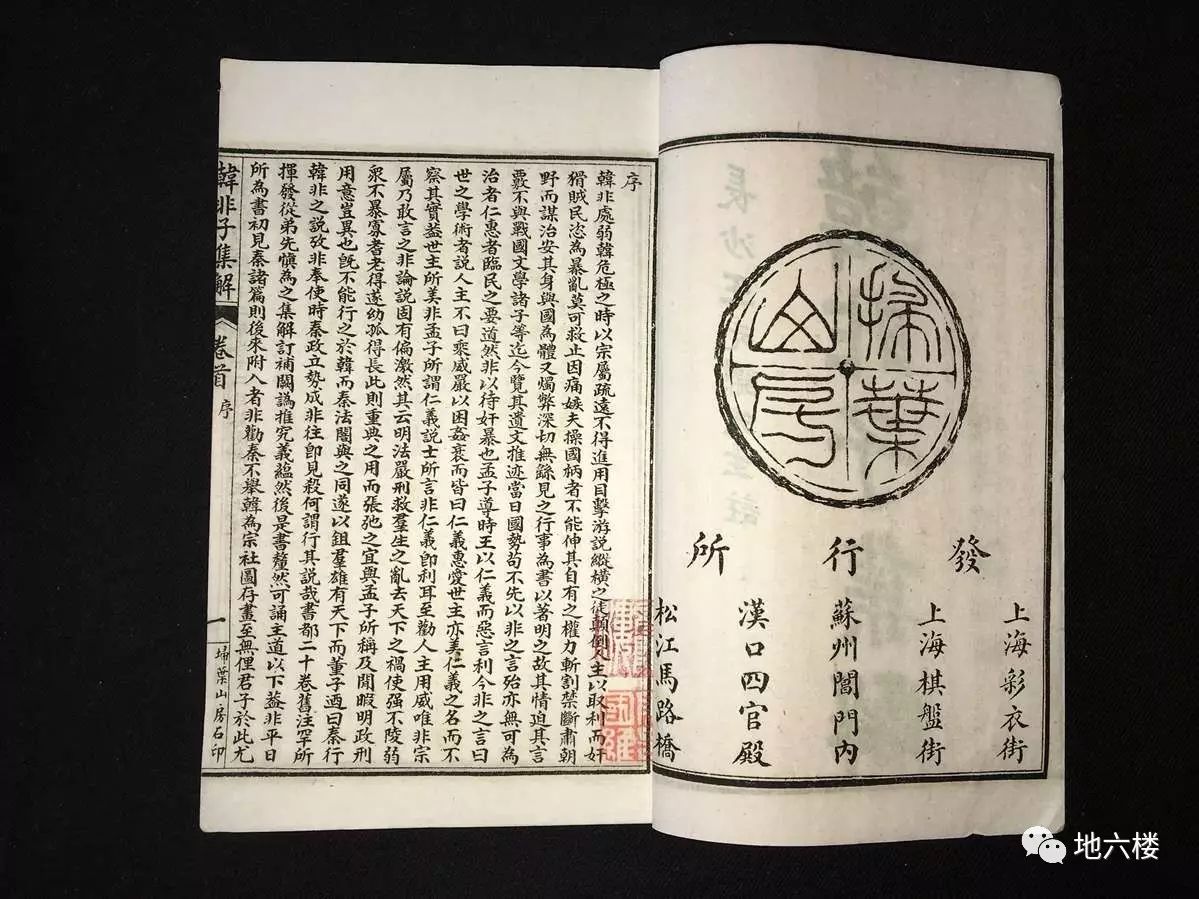 掃葉山房
發行所
上海彩衣街
上海棋盤街
蘇州閶門內
漢口四官殿
松江馬路橋
序
韓非處弱韓危極之時以宗屬疏遠不得進用目擊游說縱橫之徒顛倒人主以取利而奸
猾賊民恣為暴亂莫可救止因痛嫉夫操國柄者不能伸其自有之權力斬割禁斷肅朝
野而謀治安其身與國為體又燭弊深切無繇見之行事為書以著明之故其情迫其言
覈不與戰國文學諸子等迄今覽其遺文推迹當日國勢苟不先以非之言殆亦無可為
治者仁惠者臨民之要道然非以待奸暴也孟子導時王以仁義而惡言利今非之言曰
世之學術者說人主不曰乘威嚴以困姦衺而皆曰仁義惠愛世主亦美仁義之名而不
察其實蓋世主所美非孟子所謂仁義說士所言非仁義即利耳至勸人主用威唯非宗
屬乃敢言之非論說固有偏激然其云明法嚴刑救羣生之亂去天下之禍使强不陵弱
衆不暴寡耆老得遂幼孤得長此則重典之用而張弛之宜與孟子所稱及閒暇明政刑
用意豈異也旣不能行之於韓而秦法闇與之同遂以鉏羣雄有天下而董子迺曰秦行
韓非之說攷非奉使時秦政立勢成非往即見殺何謂行其說哉書都二十卷舊注罕所
揮發從弟先愼為之集解訂補闕譌推究義蘊然後是書釐然可誦主道以下蓋非平日
所為書初見秦諸篇則後來附入者非勸秦不舉韓為宗社圖存畫至無俚君子於此尤
韓非子集解
卷首
序
一
埽葉山房石印
地六楼